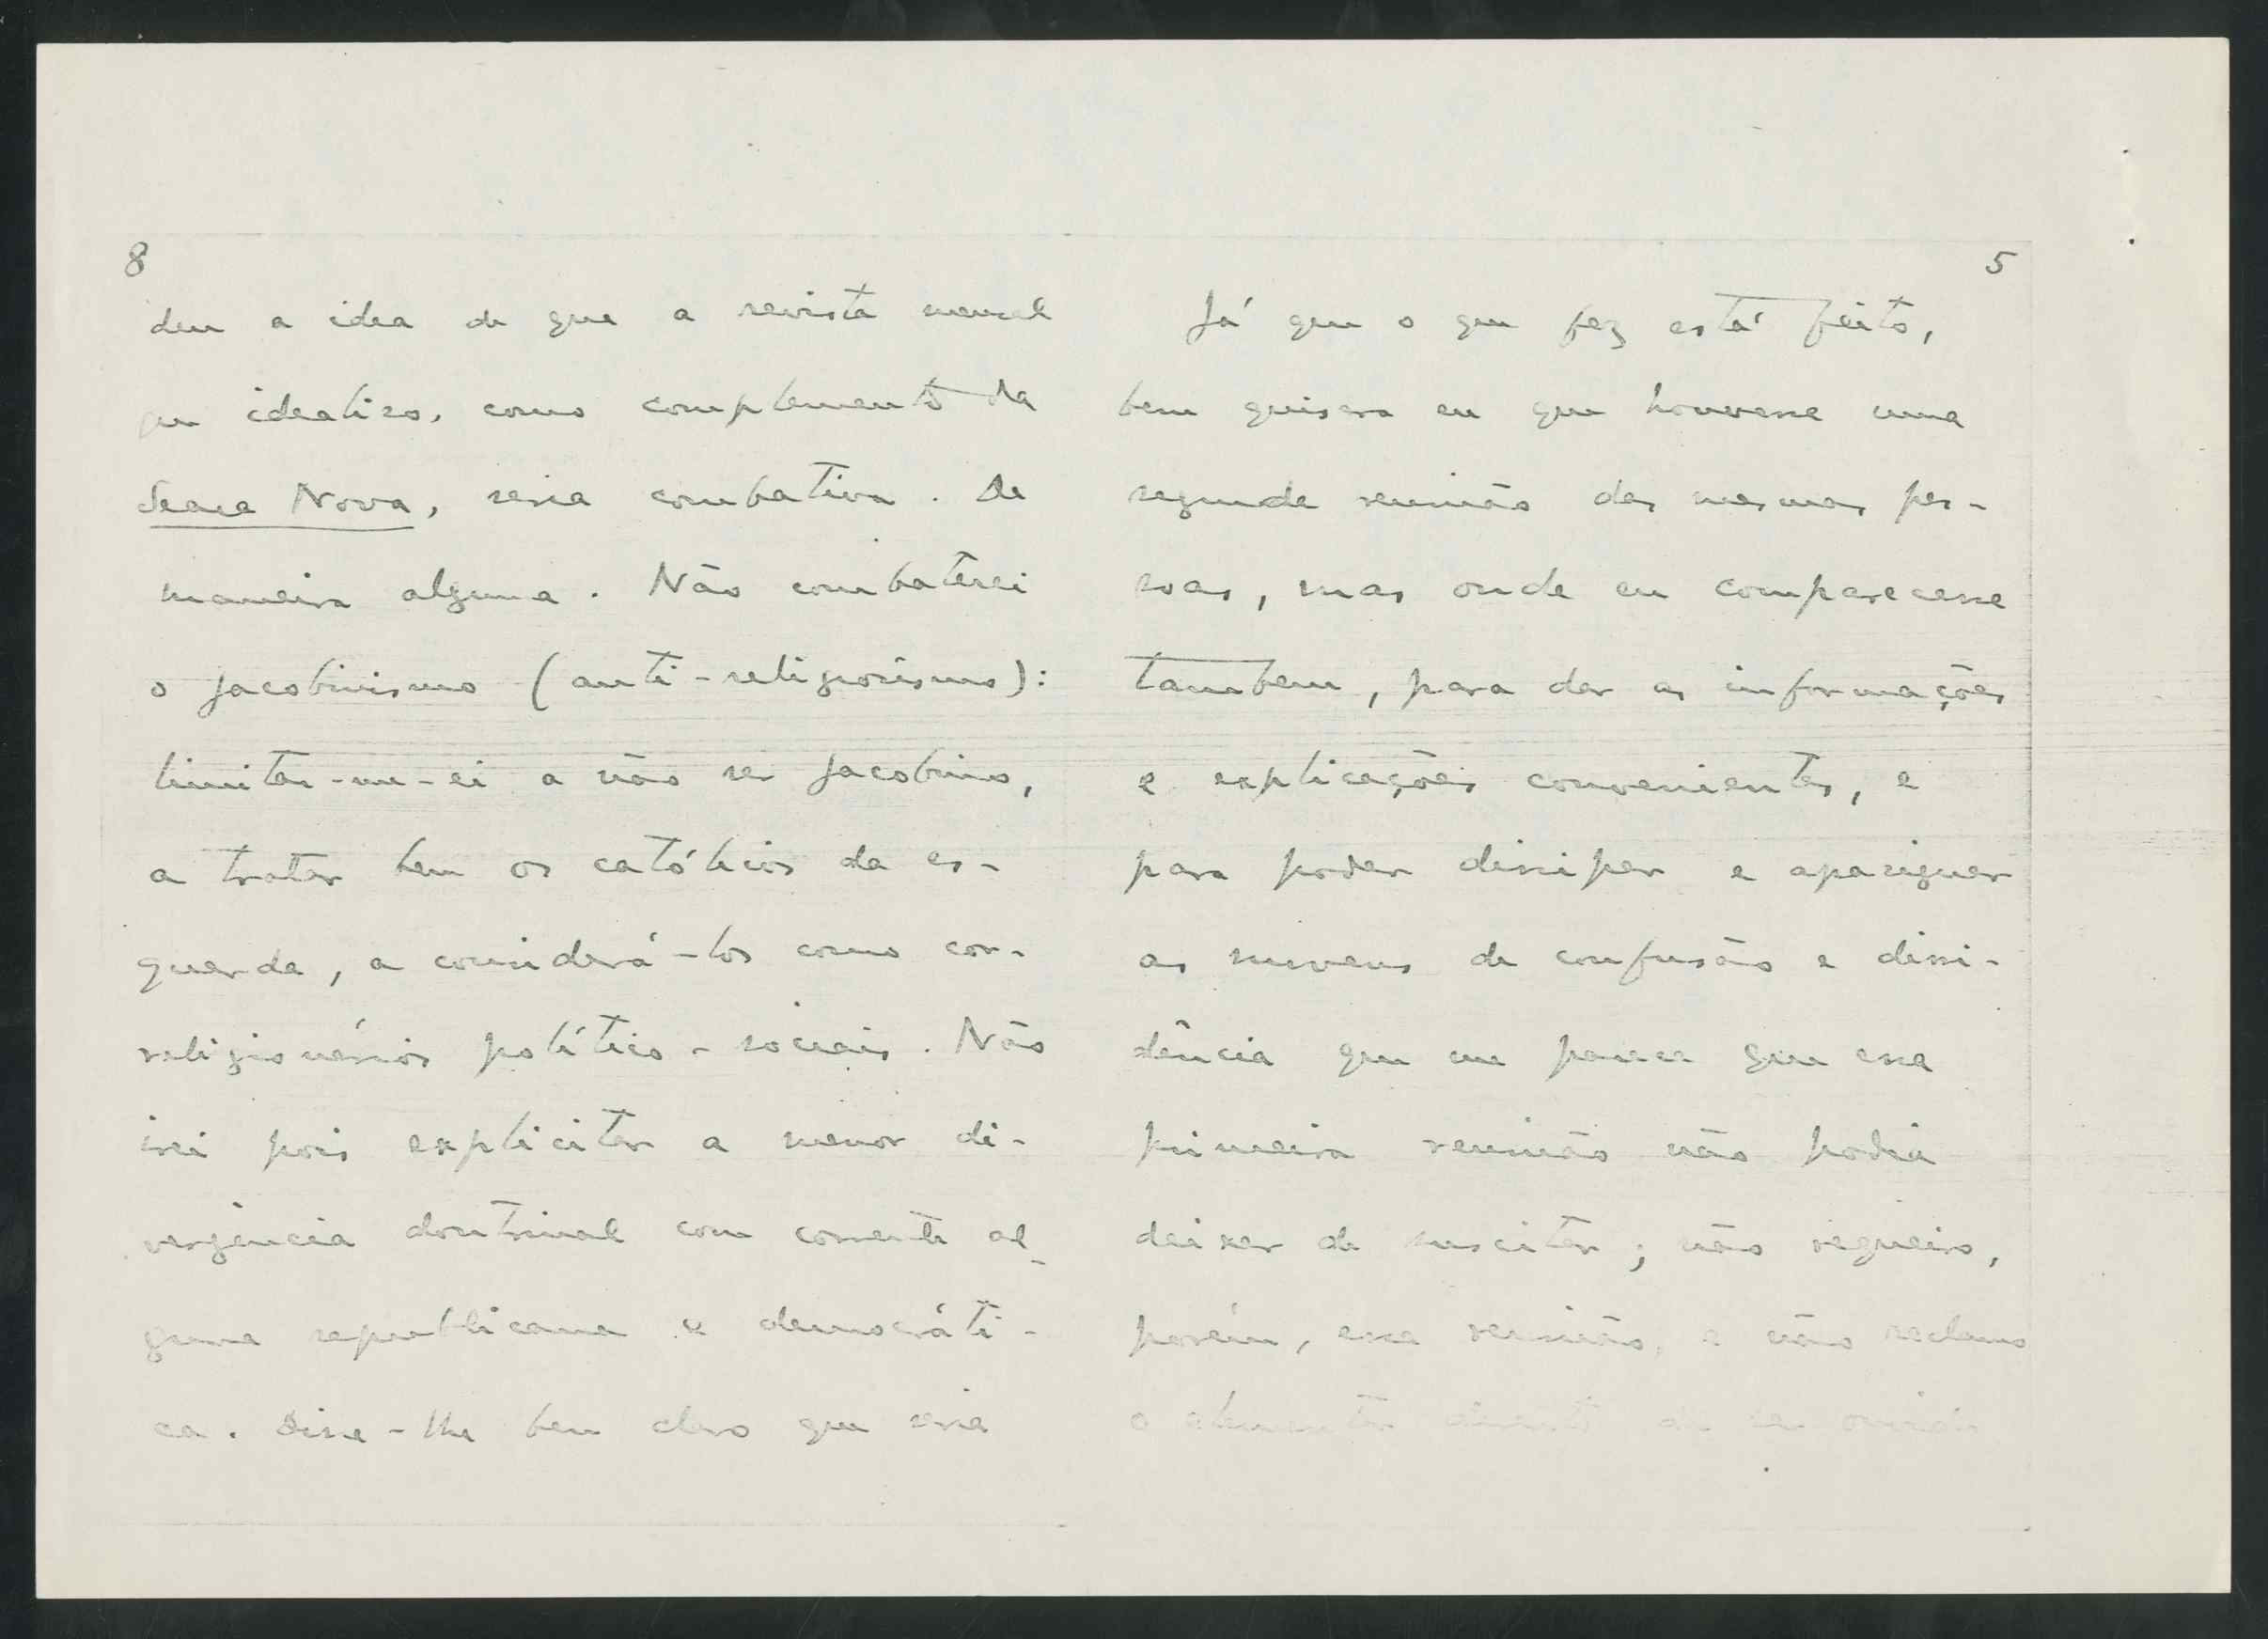 8
deu a idea de que a revista mensal
que idealizo, como complemento da
Seara Nova, seria combativa. De
maneira alguma. Não combaterei
o jacobinismo (anti-religiosismo):
limitar-me-ei a não ser jacobino,
a tratar bem os católicos da es-
querda, a considerá-los como cor-
religionários político-sociais. Não
irei pois explicitar a menor di-
vergência doutrinal com corrente al-
guma republicana e democráti-
ca. Disse-lhe bem claro que seria
5
Já que o que fez está feito,
bem quisera eu que houvesse uma
segunda reunião das mesmas pes-
soas, mas onde eu comparecesse
tambem, para dar as informações
e explicações convenientes, e
para poder dissipar e apaziguar
as nuvens de confusão e dissi-
dência que me parece que essa
primeira reunião não podia
deixar de suscitar; não requeiro,
porém, essa reunião, e não reclamo
o elementar direito de ser ouvido